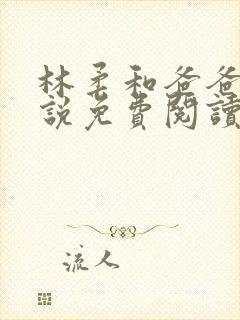 林柔和爸爸
說免費閱讀
流人